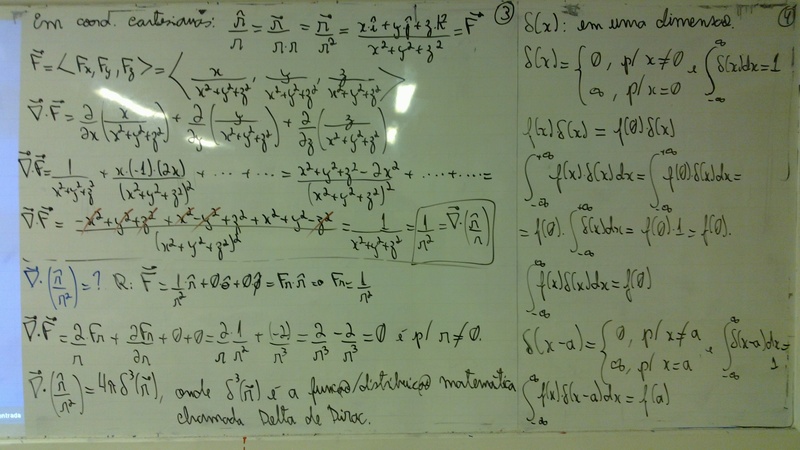 Em coord. cartesianas: n̂/n = n⃗/(n·n) = n⃗/n² = (xî+yĵ+zk̂)/(x²+y²+z²) = F⃗ ③
F⃗ = <Fx, Fy, Fz> = <x/(x²+y²+z²), y/(x²+y²+z²), z/(x²+y²+z²)>
∇⃗·F⃗ = ∂/∂x (x/(x²+y²+z²)) + ∂/∂y (y/(x²+y²+z²)) + ∂/∂z (z/(x²+y²+z²))
∇⃗·F⃗ = 1/(x²+y²+z²) + x·(-1)·(2x)/(x²+y²+z²)² + ... + ... = (x²+y²+z²-2x²)/(x²+y²+z²)² + ... + ... =
∇⃗·F⃗ = (-x²+y²+z²+x²-y²+z²+x²+y²-z²)/(x²+y²+z²)² = 1/(x²+y²+z²) = 1/n² = ∇⃗·(n̂/n)
∇⃗·(n̂/n²) = ? R: F⃗ = 1/n² n̂ + 0θ̂ + 0φ̂ = Fn·n̂ ⇒ Fn = 1/n²
∇⃗·F⃗ = 2/n Fn + ∂Fn/∂n + 0 + 0 = 2/n · 1/n² + (-2)/n³ = 2/n³ - 2/n³ = 0 é p/ n≠0.
∇⃗·(n̂/n²) = 4πδ³(n⃗), onde δ³(n⃗) é a função/distribuição matemática
chamada Delta de Dirac.
δ(x): em uma dimensão. ④
δ(x) = { 0, p/ x≠0 e ∫_{-∞}^{∞} δ(x)dx = 1
∞, p/ x=0
f(x)δ(x) = f(0)δ(x)
∫_{-∞}^{+∞} f(x)·δ(x)dx = ∫_{-∞}^{+∞} f(0)δ(x)dx =
= f(0)·∫_{-∞}^{+∞} δ(x)dx = f(0)·1 = f(0).
∫_{-∞}^{∞} f(x)δ(x)dx = f(0)
δ(x-a) = { 0, p/ x≠a e ∫_{-∞}^{∞} δ(x-a)dx = 1
∞, p/ x=a
∫_{-∞}^{∞} f(x)δ(x-a)dx = f(a)